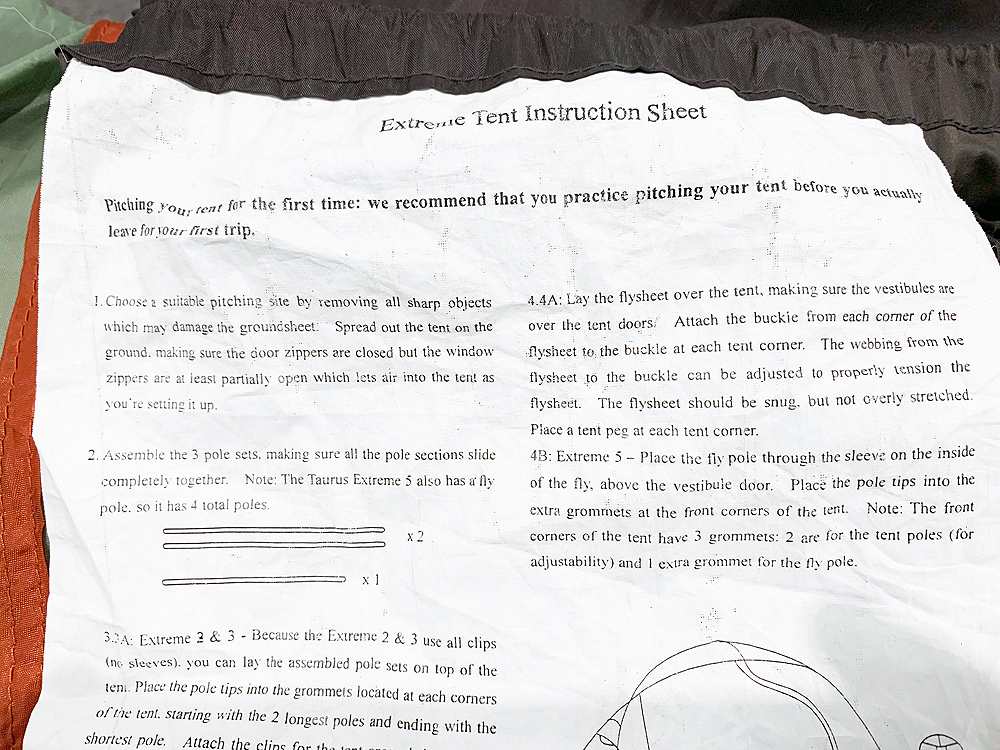 Extreme Tent Instruction Sheet
Pitching your tent for the first time: we recommend that you practice pitching your tent before you actually
leave for your first trip.
1. Choose a suitable pitching site by removing all sharp objects
which may damage the groundsheet. Spread out the tent on the
ground, making sure the door zippers are closed but the window
zippers are at least partially open which lets air into the tent as
you're setting it up.
2. Assemble the 3 pole sets, making sure all the pole sections slide
completely together. Note: The Taurus Extreme 5 also has a fly
pole, so it has 4 total poles.
x 2
x 1
3.3A: Extreme 2 & 3 - Because the Extreme 2 & 3 use all clips
(no sleeves), you can lay the assembled pole sets on top of the
tent. Place the pole tips into the grommets located at each corners
of the tent, starting with the 2 longest poles and ending with the
shortest pole. Attach the clips for the tent
4.4A: Lay the flysheet over the tent, making sure the vestibules are
over the tent doors. Attach the buckle from each corner of the
flysheet to the buckle at each tent corner. The webbing from the
flysheet to the buckle can be adjusted to properly tension the
flysheet. The flysheet should be snug, but not overly stretched.
Place a tent peg at each tent corner.
4B: Extreme 5 – Place the fly pole through the sleeve on the inside
of the fly, above the vestibule door. Place the pole tips into the
extra grommets at the front corners of the tent. Note: The front
corners of the tent have 3 grommets: 2 are for the tent poles (for
adjustability) and 1 extra grommet for the fly pole.